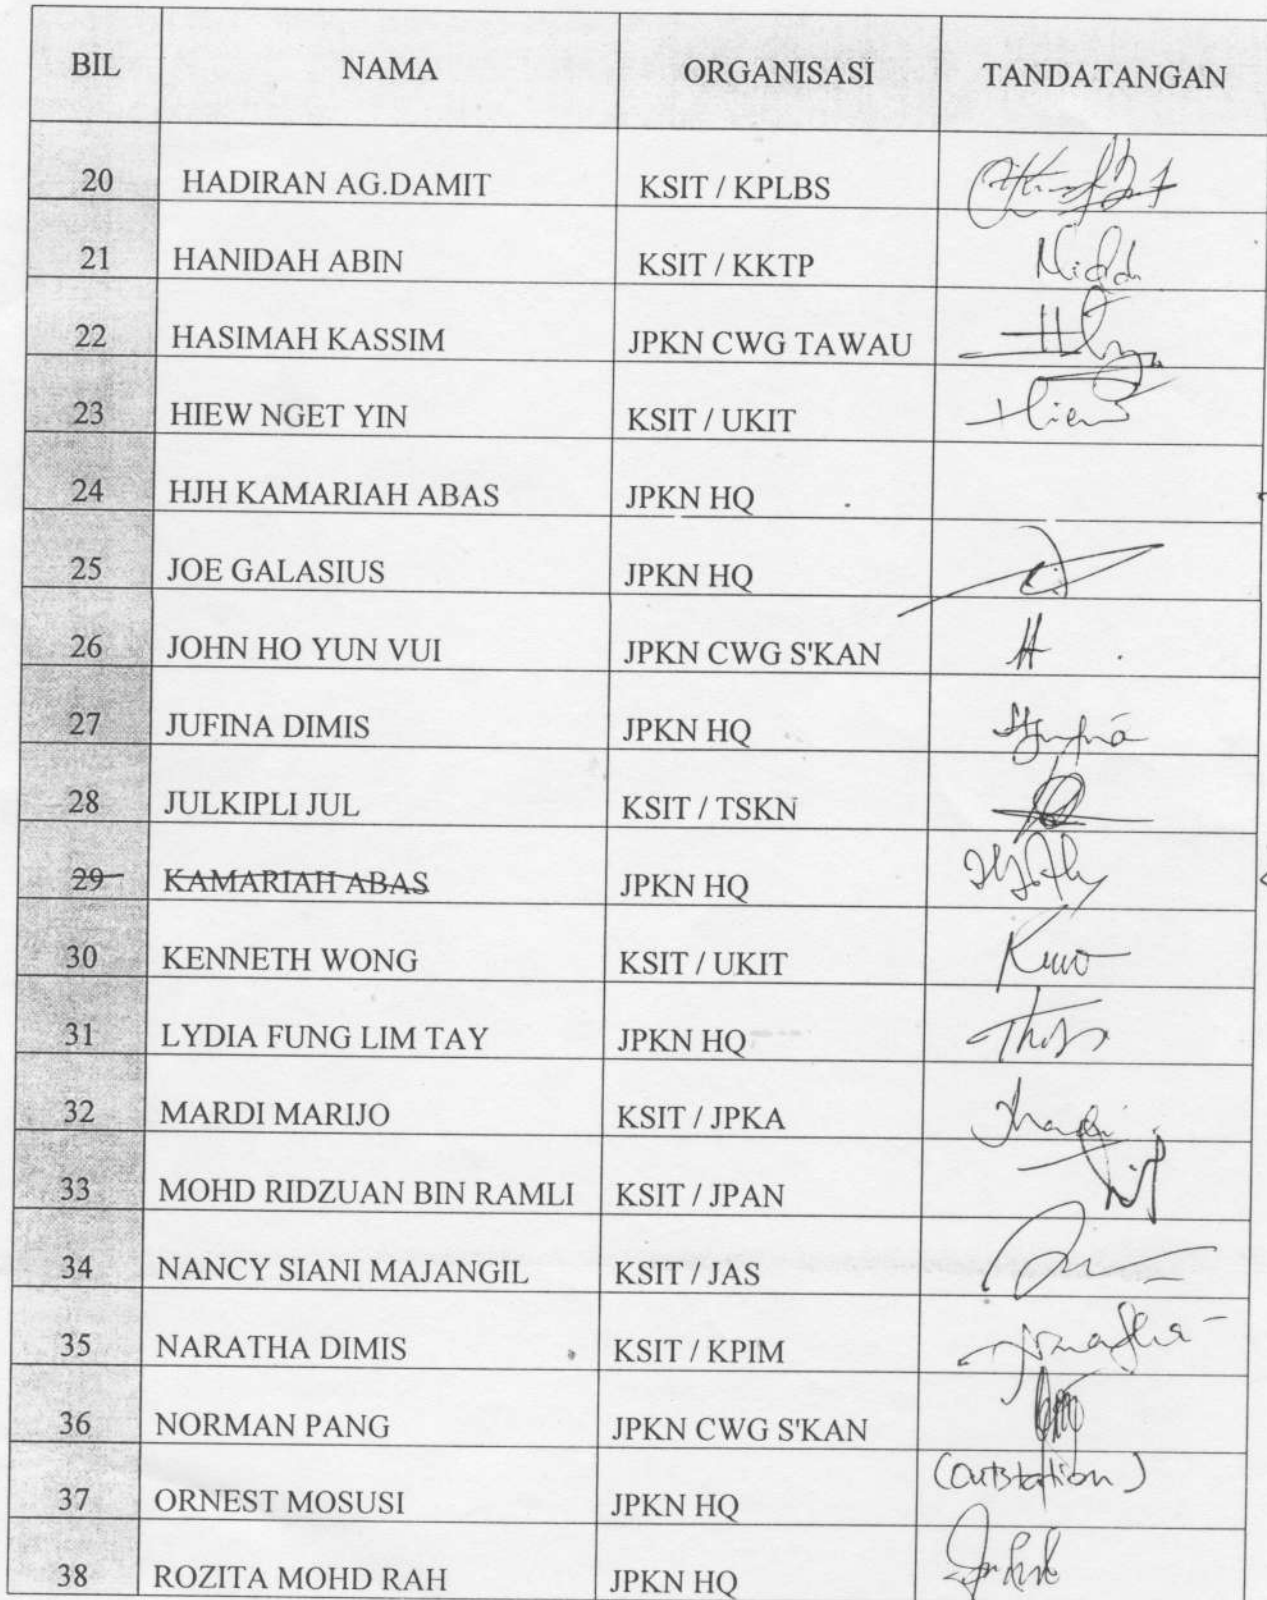 BIL NAMA ORGANISASI TANDATANGAN
20 HADIRAN AG.DAMIT KSIT / KPLBS
21 HANIDAH ABIN KSIT / KKTP
22 HASIMAH KASSIM JPKN CWG TAWAU
23 HIEW NGET YIN KSIT / UKIT
24 HJH KAMARIAH ABAS JPKN HQ
25 JOE GALASIUS JPKN HQ
26 JOHN HO YUN VUI JPKN CWG S'KAN
27 JUFINA DIMIS JPKN HQ
28 JULKIPLI JUL KSIT / TSKN
29 KAMARIAH ABAS JPKN HQ
30 KENNETH WONG KSIT / UKIT
31 LYDIA FUNG LIM TAY JPKN HQ
32 MARDI MARIJO KSIT / JPKA
33 MOHD RIDZUAN BIN RAMLI KSIT / JPAN
34 NANCY SIANI MAJANGIL KSIT / JAS
35 NARATHA DIMIS KSIT / KPIM
36 NORMAN PANG JPKN CWG S'KAN
37 ORNEST MOSUSI JPKN HQ (Outstation)
38 ROZITA MOHD RAH JPKN HQ